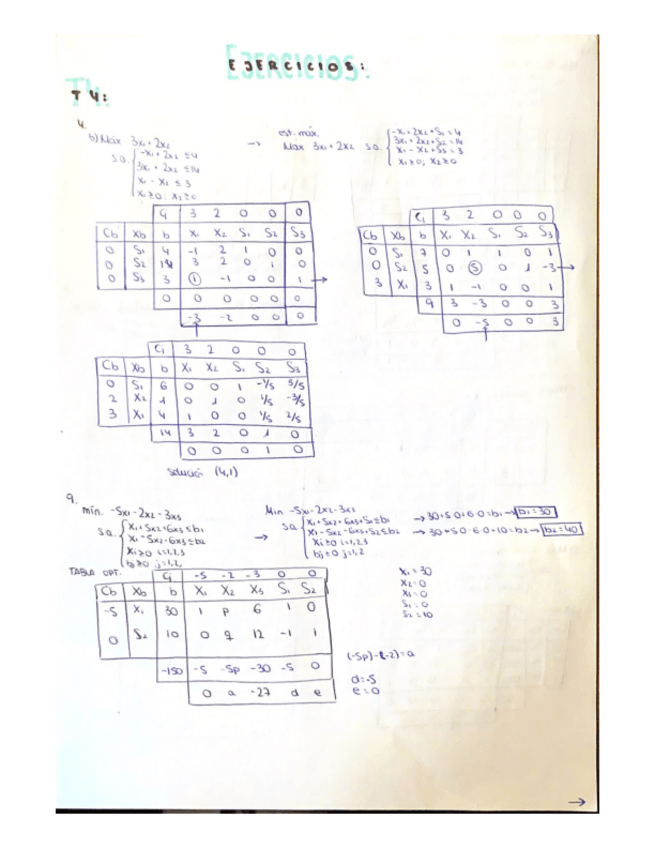 EJERCICIOS:
T4:
4.
b) Máx 3x₁+2x₂ → est. máx. Máx 3x₁+2x₂ s.a.
s.a. -x₁+2x₂ ≤ 4
3x₁+2x₂ ≤ 14
x₁-x₂ ≤ 3
x₁≥0; x₂≥0
-x₁+2x₂+S₁=4
3x₁+2x₂+S₂=14
x₁-x₂+S₃=3
x₁≥0; x₂≥0
Cj 3 2 0 0 0
Cb Xb b X₁ X₂ S₁ S₂ S₃
0 S₁ 4 -1 2 1 0 0
0 S₂ 14 3 2 0 1 0
0 S₃ 3 1 -1 0 0 1 →
0 0 0 0 0 0
-3 -2 0 0 0
Cj 3 2 0 0 0
Cb Xb b X₁ X₂ S₁ S₂ S₃
0 S₁ 7 0 1 1 0 1
0 S₂ 5 0 5 0 1 -3 →
3 X₁ 3 1 -1 0 0 1
9 3 -3 0 0 3
0 -5 0 0 3
Cj 3 2 0 0 0
Cb Xb b X₁ X₂ S₁ S₂ S₃
0 S₁ 6 0 0 1 -1/5 8/5
2 X₂ 1 0 1 0 1/5 -3/5
3 X₁ 4 1 0 0 1/5 2/5
14 3 2 0 1 0
0 0 0 1 0
solución (4,1)
9.
mín. -5x₁-2x₂-3x₃
s.a. x₁+5x₂+6x₃≤b₁
x₁-5x₂-6x₃≤b₂
xᵢ≥0 i=1,2,3
bj≥0 j=1,2
→
Min -5x₁-2x₂-3x₃
s.a. x₁+5x₂+6x₃+S₁≤b₁ → 30+5·0+6·0=b₁ → b₁=30
x₁-5x₂-6x₃+S₂≤b₂ → 30+5·0-6·0+10=b₂ → b₂=40
xᵢ≥0 i=1,2,3
bj≥0 j=1,2
TABLA OPT.
Cj -5 -2 -3 0 0
Cb Xb b X₁ X₂ X₃ S₁ S₂
-5 X₁ 30 1 p 6 1 0
0 S₂ 10 0 q 12 -1 1
-150 -5 -5p -30 -5 0
0 a -27 d e
x₁=30
x₂=0
x₃=0
S₁=0
S₂=10
(-5p)-(-2)=a
d=-5
e=0
→